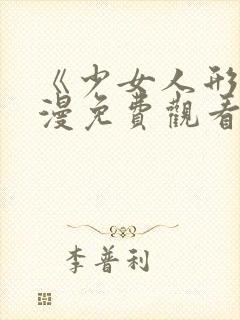 《少女人形
漫免費觀看
李普利